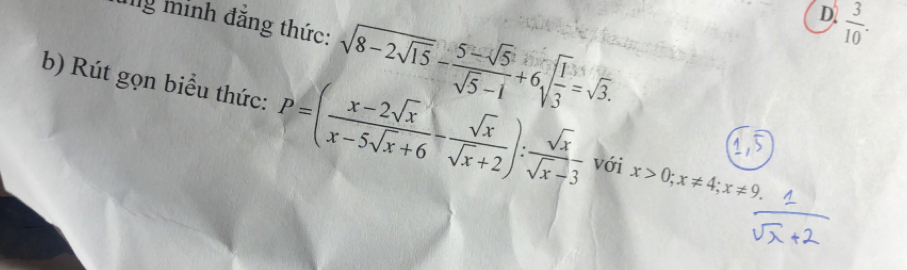 minh đẳng thức: √(8-2√15) - (5-√5)/(√5-1) + 6√(1/3) = √3.
D. 3/10.
b) Rút gọn biểu thức: P = ((x-2√x)/(x-5√x+6) - √x/(√x+2)) : √x/(√x-3) với x > 0; x ≠ 4; x ≠ 9.
1,5
1/(√x+2)